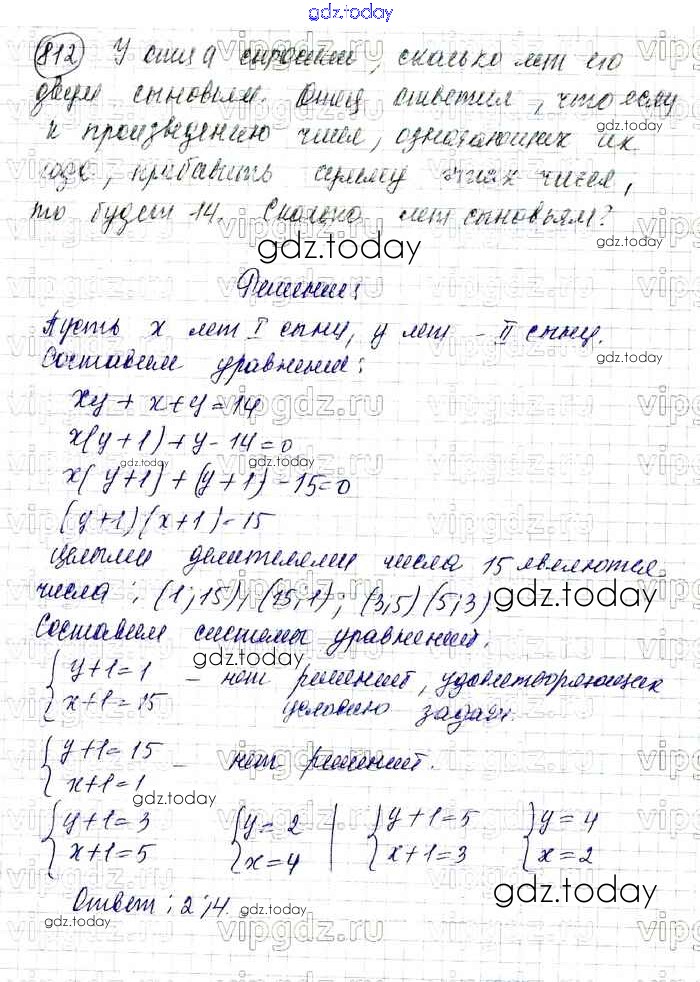 gdz.today
812 У отца спросили, сколько лет его
двум сыновьям. Отец ответил, что если
к произведению чисел, означающих их
года, прибавить сумму этих чисел,
то будет 14. Сколько лет сыновьям?
gdz.today
Решение:
Пусть x лет I сыну, y лет – II сыну.
Составим уравнение:
xy + x + y = 14
x(y + 1) + y - 14 = 0
x(y+1) + (y+1) - 15 = 0
(y+1)(x+1) = 15
Целыми делителями числа 15 являются
числа: (1; 15); (15; 1); (3; 5) (5; 3)
gdz.today
Составим системы уравнений.
{ y+1=1
x+1=15 – нет решений, удовлетворяющих
условию задачи.
{ y+1=15
x+1=1 – нет решений.
{ y+1=3 { y=2 | { y+1=5 { y=4
x+1=5 x=4 | x+1=3 x=2
Ответ: 2; 4.
gdz.today
vipgdz.ru